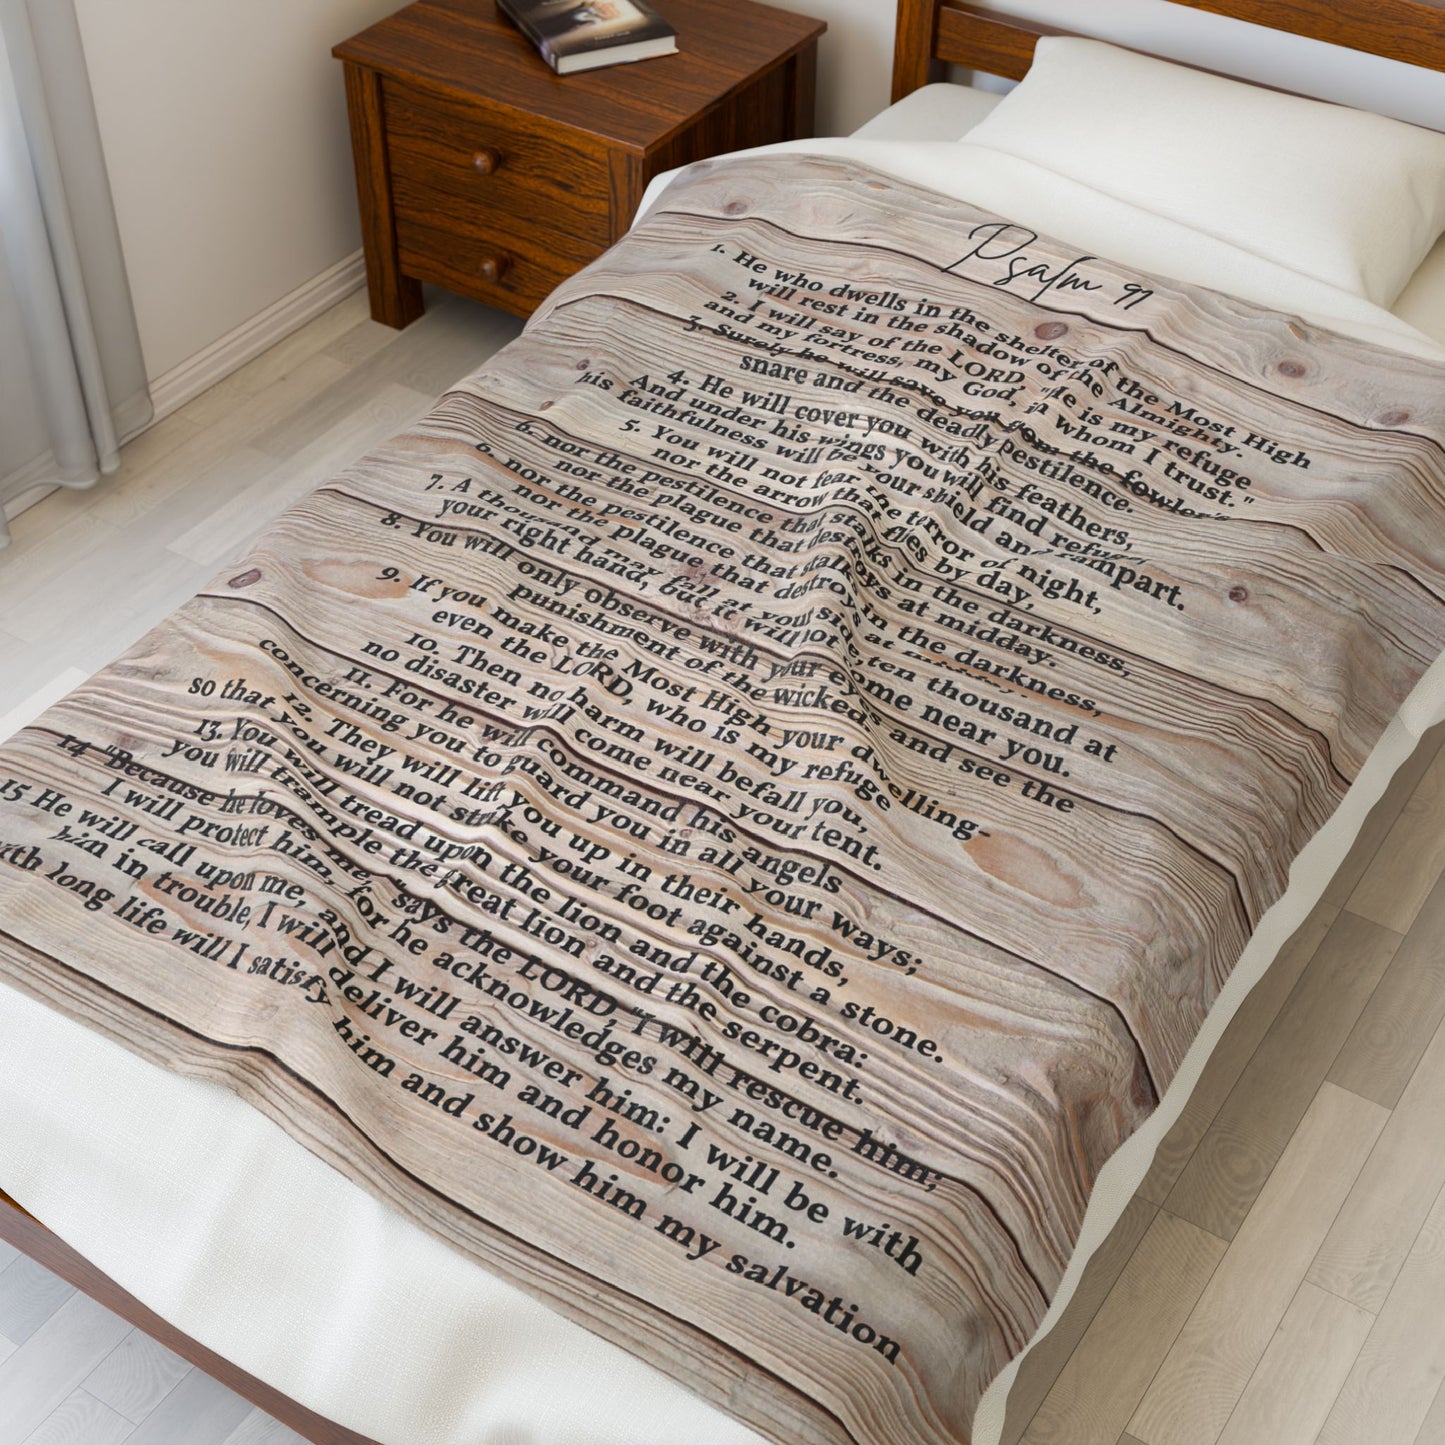 Psalm 91
1. He who dwells in the shelter of the Most High
will rest in the shadow of the Almighty.
2. I will say of the LORD, "He is my refuge
and my fortress, my God, in whom I trust."
3. Surely he will save you from the fowler's
snare and the deadly pestilence.
4. He will cover you with his feathers,
And under his wings you will find refuge,
his faithfulness will be your shield and rampart.
5. You will not fear the terror of night,
nor the arrow that flies by day,
6. nor the pestilence that stalks in the darkness,
nor the plague that destroys at midday.
6. nor the pestilence that stalks in the darkness,
nor the plague that destroys at
7. A thousand may fall at your side, ten thousand at
your right hand, but it will not come near you.
8. You will only observe with your eyes and see the
punishment of the wicked.
9. If you make the Most High your dwelling-
even the LORD, who is my refuge
10. Then no harm will befall you,
no disaster will come near your tent.
11. For he will command his angels
concerning you to guard you in all your ways;
12. They will lift you up in their hands,
so that you will not strike your foot against a stone.
13. You will tread upon the lion and the cobra:
you will trample the great lion and the serpent.
14 "Because he loves me "says the LORD, "I will rescue him;
I will protect him, for he acknowledges my name.
15 He will call upon me, and I will answer him: I will be with
him in trouble, I will deliver him and honor him.
with long life will I satisfy him and show him my salvation